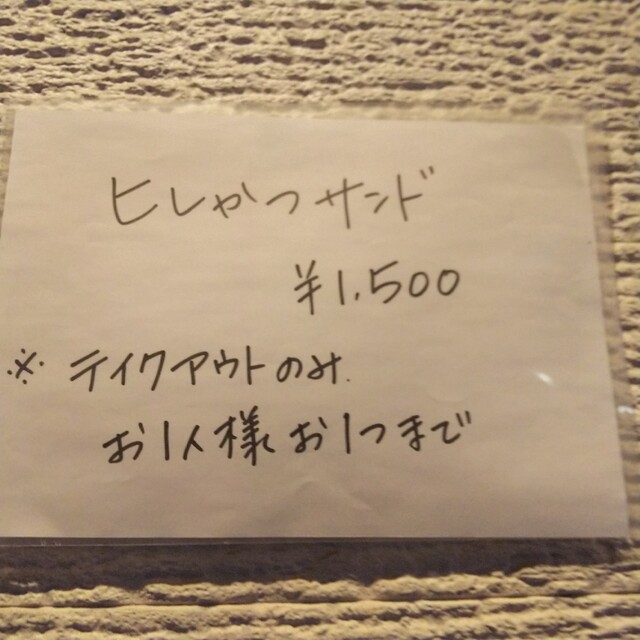 ヒレかつサンド
¥1,500
※ テイクアウトのみ.
お1人様 お1つまで